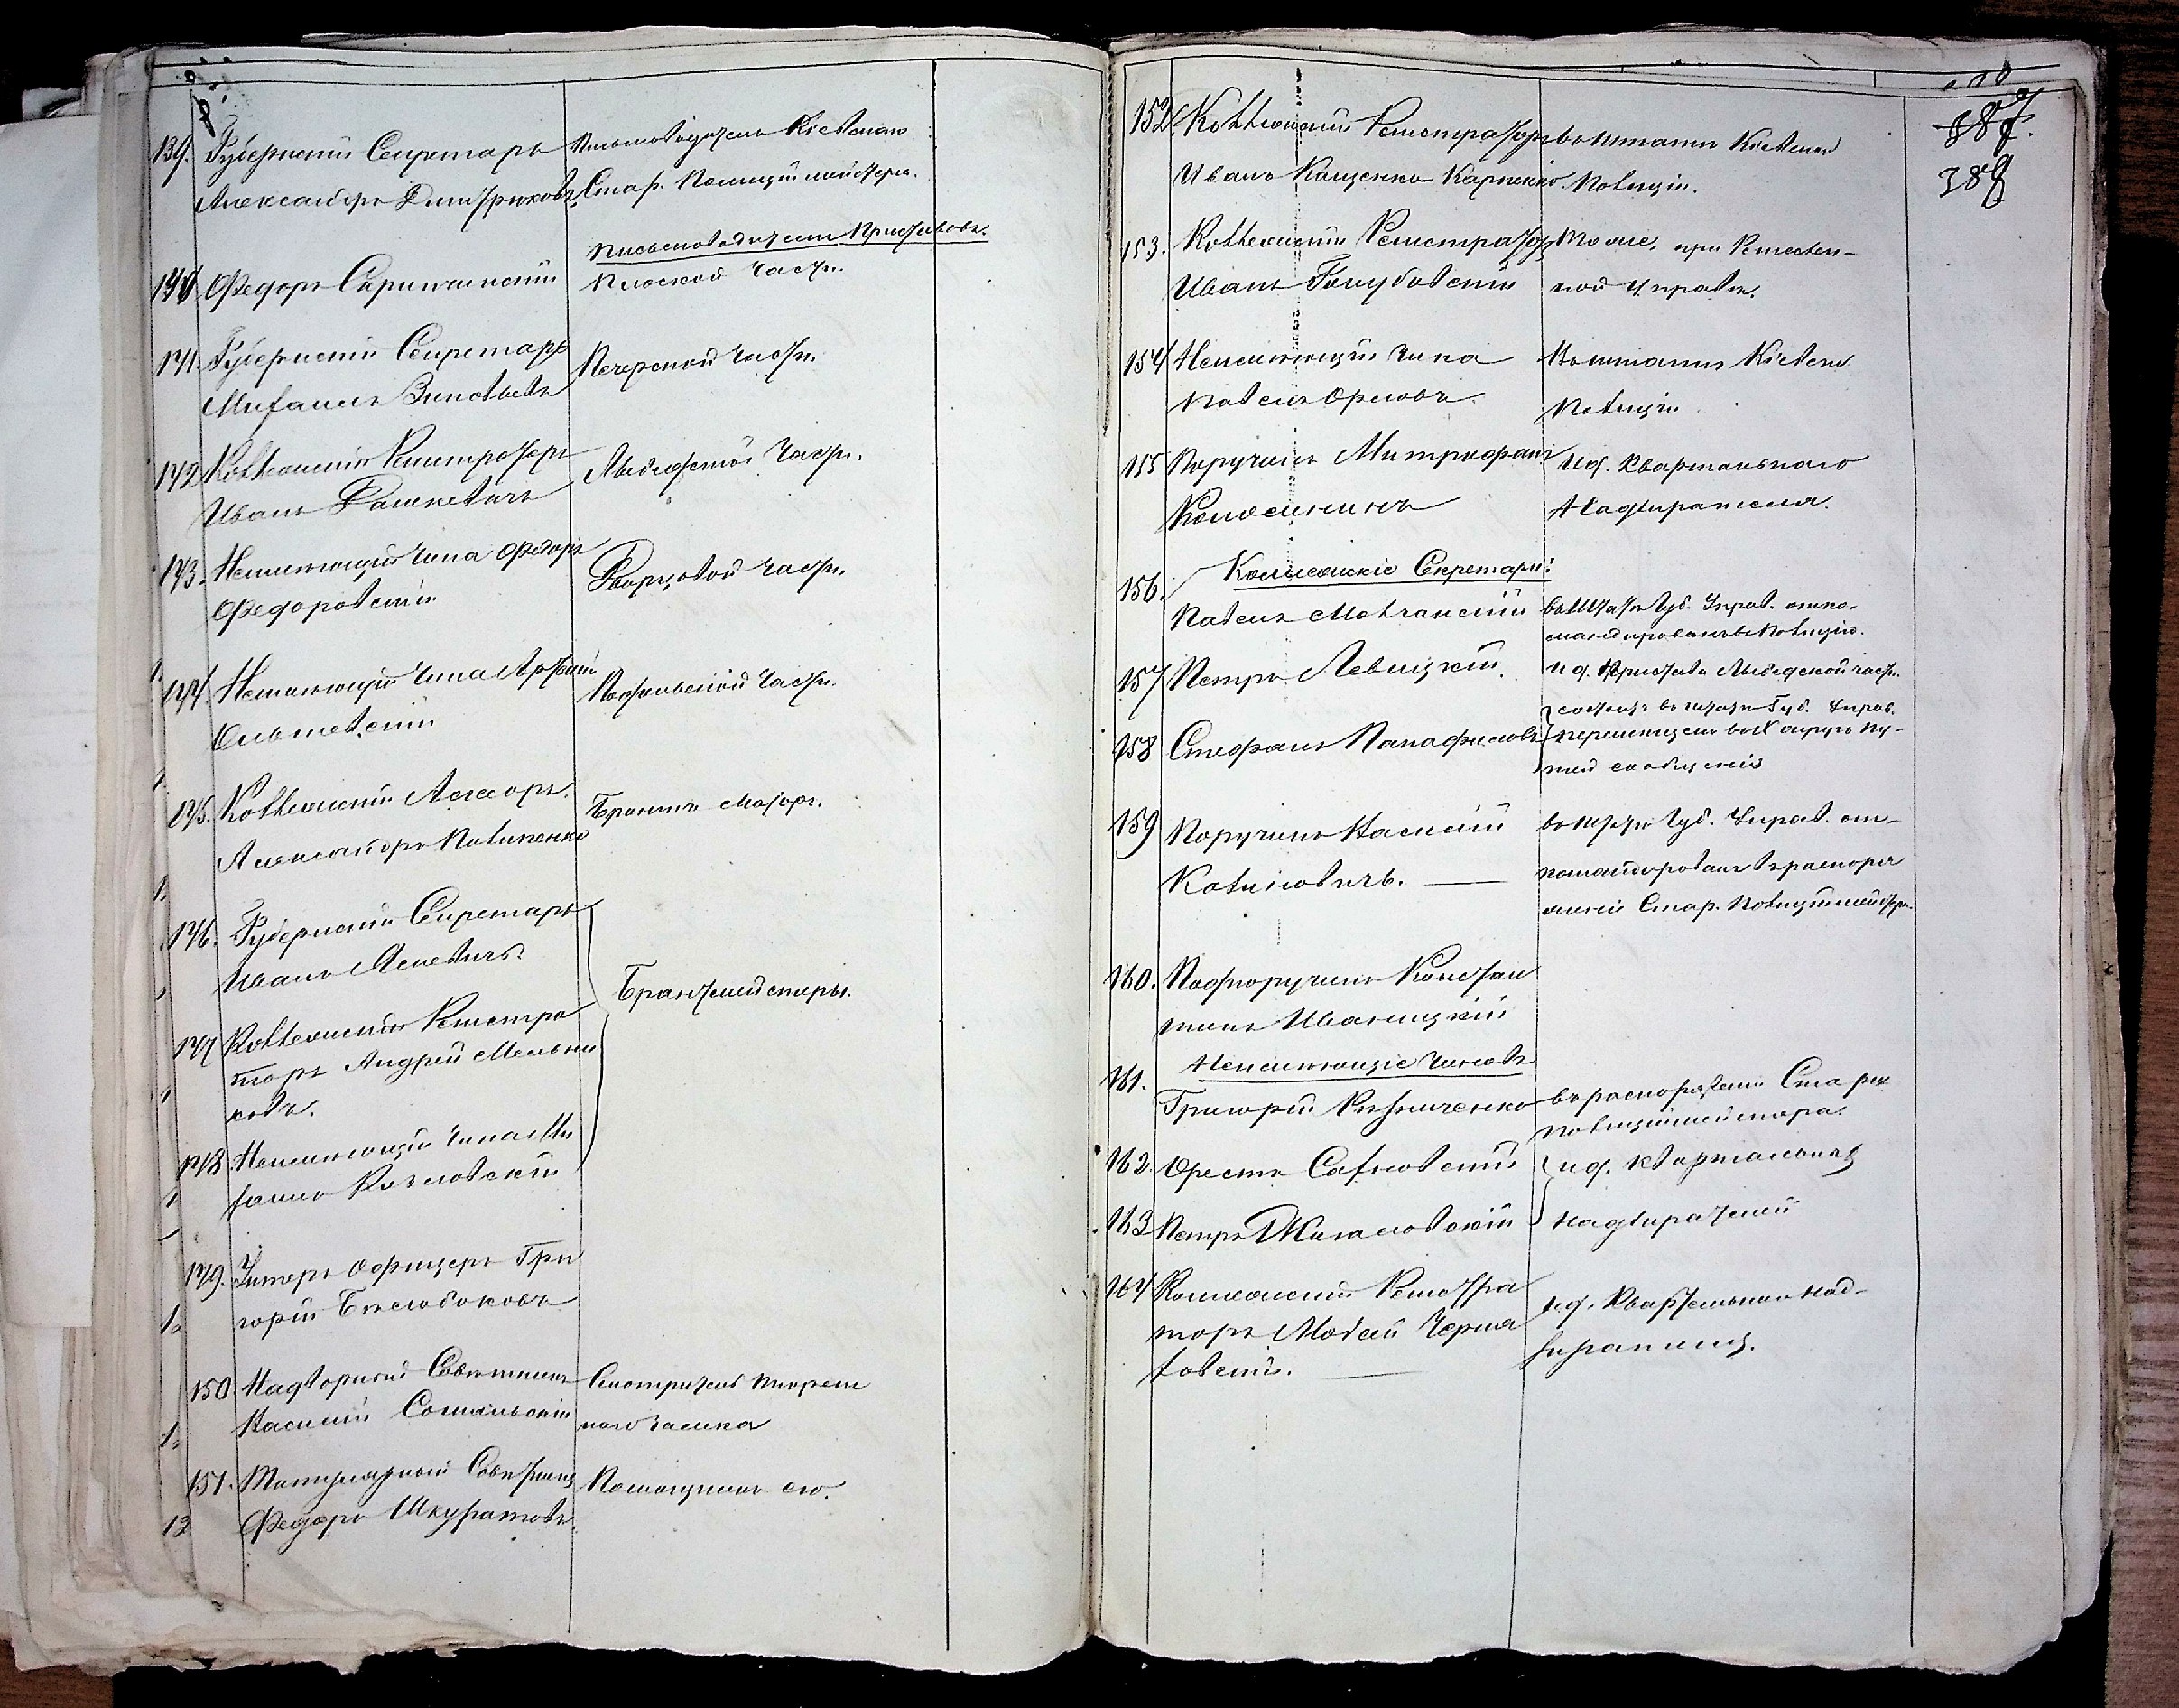 139. Губернскій Секретарь
Александръ Дмитрюковъ.
Письмоводитель Кіевскаго
Стар. Полиціймейстера.
Письмоводители Приставовъ.
140 Федоръ Скринчинскій
Плоской части.
141. Губернскій Секретарь
Михаилъ Зиновьевъ
Печерской части.
142 Коллежскій Регистраторъ
Иванъ Рашкевичъ
Лыбедской части.
143. Неимѣющій чина Федоръ
Федоровскій
Дворцовой части.
144. Неимѣющій чина
Ольшевскій
Подольской части.
145. Коллежскій Асессоръ
Александръ Пилипенко
Брантъ Маіоръ.
146. Губернскій Секретарь
Иванъ Ясевичъ.
Брантмейстеры.
147 Коллежскій Регистра
торъ Андрей Мельни
ковъ.
148 Неимѣющій чина Ми
хаилъ Козловскій
149. Унтеръ Офицеръ Гри
горій Бѣлобоковъ
150 Надворный Совѣтникъ
Василій
Смотритель тюрем
наго замка
151. Титулярный Совѣтникъ
Федоръ Шкуратовъ.
Помощникъ его.
387.
388
152 Коллежскій Регистраторъ
Иванъ Кащенко Карпенко.
въ штатъ Кіевской
Полиціи.
153. Коллежскій Регистраторъ
Иванъ Голубовскій
Тоже, при Ремеслен-
ной Управѣ.
154 Неимѣющій чина
Павелъ Орловъ.
Въ штатъ Кіевской
Полиціи
155 Поручикъ Митрофанъ
Колосинскій
И.д. Квартальнаго
Надзирателя.
156. Коллежскіе Секретари:
Павелъ Молчанскій
въ штатѣ Губ. Правл. отко-
мандированъ въ Полицію.
157 Петръ Левицкій.
И.д. Пристава Лыбедской части.
158 Стефанъ Панафиловъ
состоитъ въ штатѣ Губ. Правл.
перемѣщенъ въ Х округъ пу-
тей сообщенія
159 Поручикъ Василій
Калиновичъ.
въ штатъ Губ. Правл. от-
командированъ въ распоря
женіе Стар. Полиціймейстера.
160. Подпоручикъ Констан
тинъ Иваницкій
161. Неимѣющіе чиновъ
Григорій Резниченко
въ распоряженіи Старш
Полиціймейстера.
162. Орестъ Сахновскій
163 Петръ Жигаловскій
и.д. квартальныхъ
надзирателей
164 Коллежскій Регистра
торъ Мойсей Черня
ховскій.
и.д. Квартальнаго над-
зирателя.